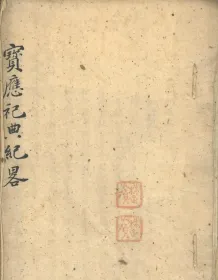 寳應祀典紀畧